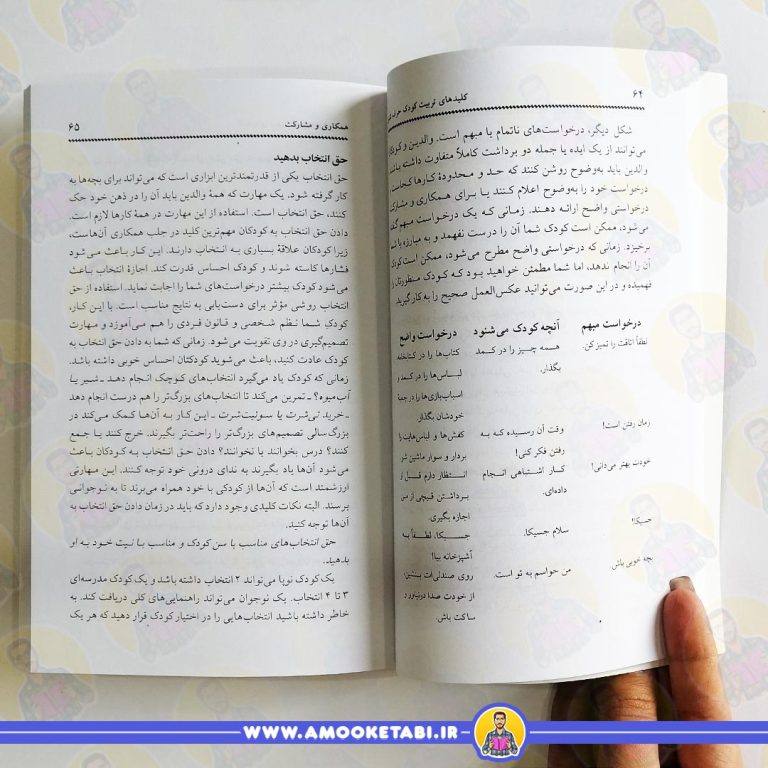 ۶۴ کلیدهای تربیت کودک
شکل دیگر، درخواست‌های ناتمام یا مبهم است. والدین و کودکان
می‌توانند از یک ایده یا جمله دو برداشت کاملاً متفاوت داشته باشند
والدین باید به‌وضوح روشن کنند که حد و محدودهٔ کارها کجاست
درخواست خود را به‌وضوح اعلام کنند یا برای همکاری و مشارکت
درخواستی واضح ارائه دهند. زمانی که یک درخواست مبهم
می‌شود، ممکن است کودک شما آن را درست نفهمد و به مبارزه با
برخیزد. زمانی که درخواستی واضح مطرح می‌شود، ممکن است کودک
آن را انجام ندهد، اما شما مطمئن خواهید بود که کودک منظورتان را
فهمیده و در این صورت می‌توانید عکس‌العمل صحیح را به‌کار گیرید.
درخواست مبهم آنچه کودک می‌شنود درخواست واضح
لطفاً اتاقت را تمیز کن. همه چیز را در کمد کتاب‌ها را در کتابخانه
بگذار. لباس‌ها را در کمد و
اسباب‌بازی‌ها را در جعبهٔ
خودشان بگذار.
زمان رفتن است! وقت آن رسیده که به کفش‌ها و لباس‌هایت را
رفتن فکر کنی! بردار و سوار ماشین شو.
خودت بهتر می‌دانی! کار اشتباهی انجام انتظار دارم قبل از
داده‌ای. برداشتن قیچی از من
اجازه بگیری.
جسیکا! سلام جسیکا. جسیکا، لطفاً به
آشپزخانه بیا!
بچه خوبی باش. من حواسم به تو است. روی صندلی‌ات بنشین،
از خودت صدا درنیاور و
ساکت باش.
همکاری و مشارکت ۶۵
حق انتخاب بدهید
حق انتخاب یکی از قدرتمندترین ابزاری است که می‌تواند برای بچه‌ها به
کار گرفته شود. یک مهارت که همهٔ والدین باید آن را در ذهن خود حک
کنند، حق انتخاب است. استفاده از این مهارت در همهٔ کارها لازم است.
دادن حق انتخاب به کودکان مهم‌ترین کلید در جلب همکاری آن‌هاست،
زیرا کودکان علاقهٔ بسیاری به انتخاب دارند. این کار باعث می‌شود
فشارها کاسته شوند و کودک احساس قدرت کند. اجازهٔ انتخاب باعث
می‌شود کودک بیشتر درخواست‌های شما را اجابت نماید. استفاده از حق
انتخاب روشی مؤثر برای دست‌یابی به نتایج مناسب است. با این کار،
کودک شما نظم شخصی و قانون فردی را هم می‌آموزد و مهارت
تصمیم‌گیری در وی تقویت می‌شود. زمانی که شما به دادن حق انتخاب به
کودک عادت کنید، باعث می‌شوید کودکتان احساس خوبی داشته باشد.
زمانی که کودک یاد می‌گیرد انتخاب‌های کوچک انجام دهد ـ شیر یا
آب‌میوه؟ ـ تمرین می‌کند تا انتخاب‌های بزرگ‌تر را هم درست انجام دهد
ـ خرید تی‌شرت یا سوئیت‌شرت ـ این کار به آن‌ها کمک می‌کند در
بزرگ‌سالی تصمیم‌های بزرگ‌تر را راحت‌تر بگیرند. خرج کنند یا جمع
کنند؟ درس بخوانند یا نخوانند؟ دادن حق انتخاب به کودکان باعث
می‌شود آن‌ها یاد بگیرند به ندای درونی خود توجه کنند. این مهارتی
ارزشمند است که آن‌ها از کودکی با خود همراه می‌برند تا به نوجوانی
برسند. البته نکات کلیدی وجود دارد که باید در زمان دادن حق انتخاب به
آن‌ها توجه کنید.
حق انتخاب‌های مناسب با سن کودک و مناسب با نیت خود به او
بدهید.
یک کودک نوپا می‌تواند ۲ انتخاب داشته باشد و یک کودک مدرسه‌ای
۳ تا ۴ انتخاب. یک نوجوان می‌تواند راهنمایی‌های کلی دریافت کند. به
خاطر داشته باشید انتخاب‌هایی را در اختیار کودک قرار دهید که هر یک
WWW.AMOOKETABI.IR